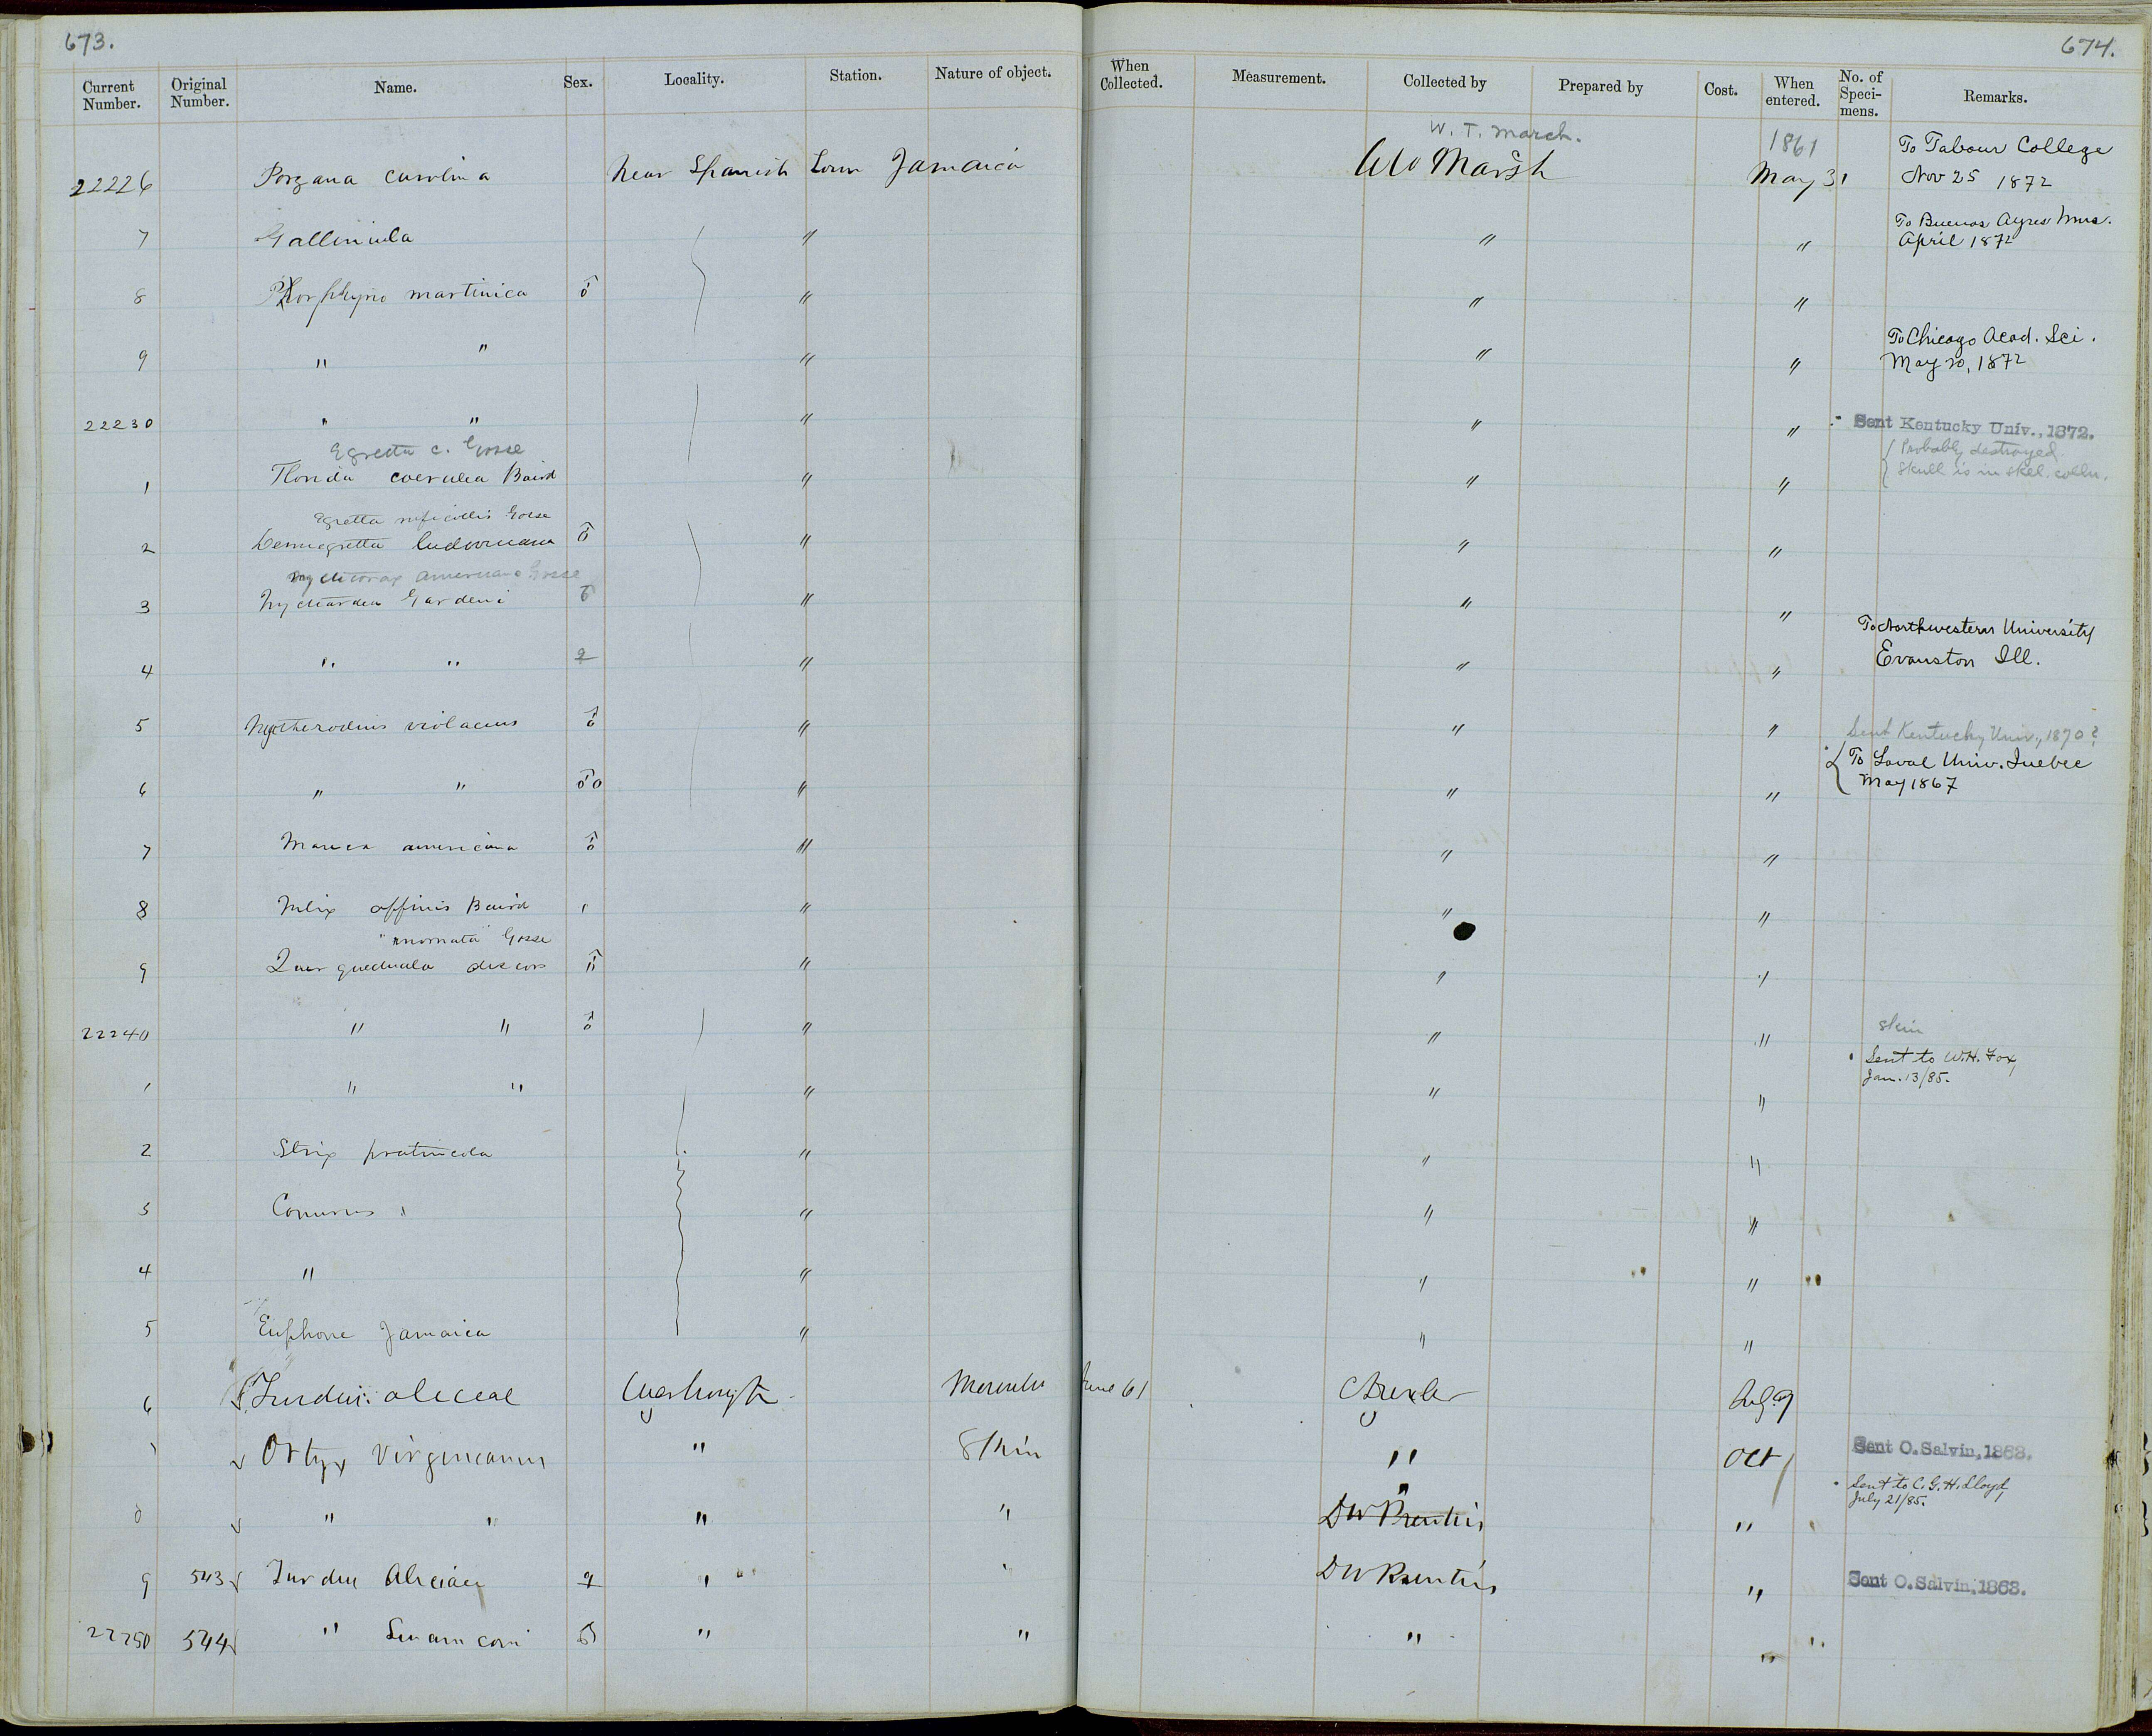 673.
674.
Current Number. Original Number. Name. Sex. Locality. Station. Nature of object. When Collected. Measurement. Collected by Prepared by Cost. When entered. No. of Speci- mens. Remarks.
W. T. March. 1861 To Tabour College
22226 Porzana carolina Near Spanish Town Jamaica Marsh May 31 Nov 25 1872
To Buenos Ayres Mus.
7 Gallinula " " " April 1872
8 Porphyrio martinica ♂ " " "
To Chicago Acad. Sci.
9 " " " " " May 20, 1872
22230 " " " " " Sent Kentucky Univ., 1872.
Egretta c. Gosse { Probably destroyed.
1 Florida coerulea Baird " " " Skull is in skel. colln.
Egretta ruficollis Gosse
2 Demiegretta ludoviciana ♂ " " "
Nycticorax americana Gosse
3 Nyctiardea Gardeni ♂ " " "
To Northwestern University
4 " " ♀ " " " Evanston Ill.
5 Nyctherodius violaceus ♂ " " " Sent Kentucky Univ., 1870?
{ To Laval Univ. Quebec
6 " " ♂ o " " " May 1867
7 Mareca americana ♂ " " "
8 Fulix affinis Baird " " " "
"inornata" Gosse
9 Querquedula discors ♂ " " "
22240 " " ♂ " " " skin
Sent to W.H. Fox,
1 " " " " " Jan. 13/85.
2 Strix pratincola " " "
3 Conurus " " " "
4 " " " "
5 Euphone Jamaica " " "
6 Turdus aliceae June 61 Drexler
7 Ortyx Virginianus " Skin " Oct Sent O. Salvin, 1863.
Sent to C. G. H. Lloyd,
July 21/85.
8 " " " " DW Prentiss "
9 543 Turdus Aliciae ♀ " " DW Prentiss " Sent O. Salvin, 1863.
22250 544 " Swainsoni ♂ " " " "